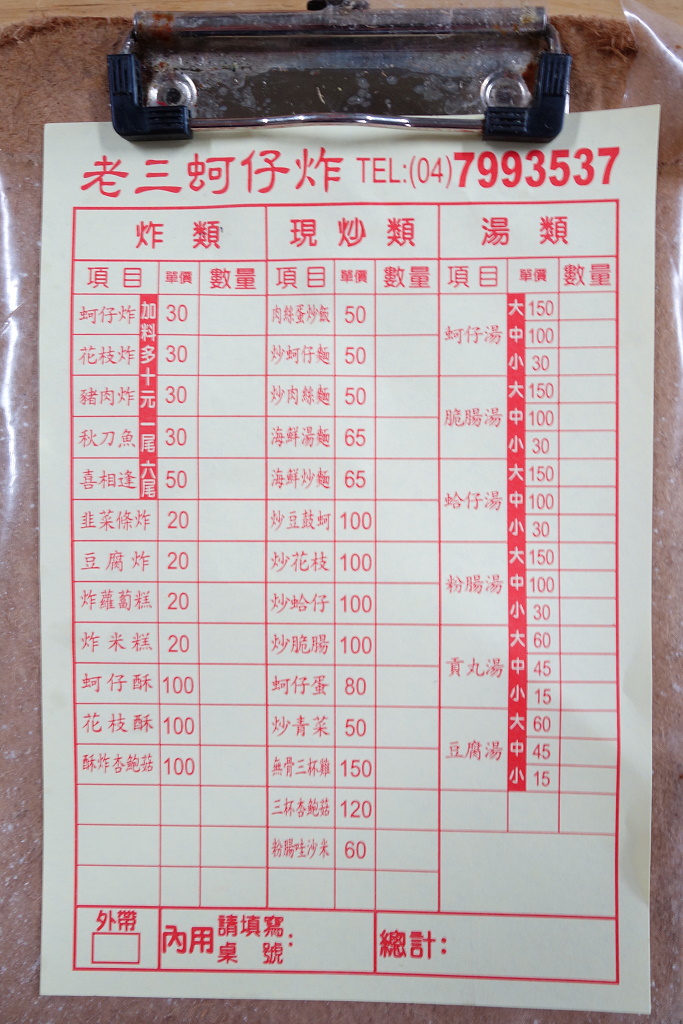 老三蚵仔炸 TEL:(04)7993537
炸類 現炒類 湯類
項目 單價 數量 項目 單價 數量 項目 單價 數量
加料多十元
蚵仔炸 30
花枝炸 30
豬肉炸 30
秋刀魚 一尾 30
喜相逢 六尾 50
韭菜條炸 20
豆腐炸 20
炸蘿蔔糕 20
炸米糕 20
蚵仔酥 100
花枝酥 100
酥炸杏鮑菇 100
肉絲蛋炒飯 50
炒蚵仔麵 50
炒肉絲麵 50
海鮮湯麵 65
海鮮炒麵 65
炒豆鼓蚵 100
炒花枝 100
炒蛤仔 100
炒脆腸 100
蚵仔蛋 80
炒青菜 50
無骨三杯雞 150
三杯杏鮑菇 120
粉腸哇沙米 60
蚵仔湯
大 150
中 100
小 30
脆腸湯
大 150
中 100
小 30
蛤仔湯
大 150
中 100
小 30
粉腸湯
大 150
中 100
小 30
貢丸湯
大 60
中 45
小 15
豆腐湯
大 60
中 45
小 15
外帶
內用 請填寫桌號:
總計: